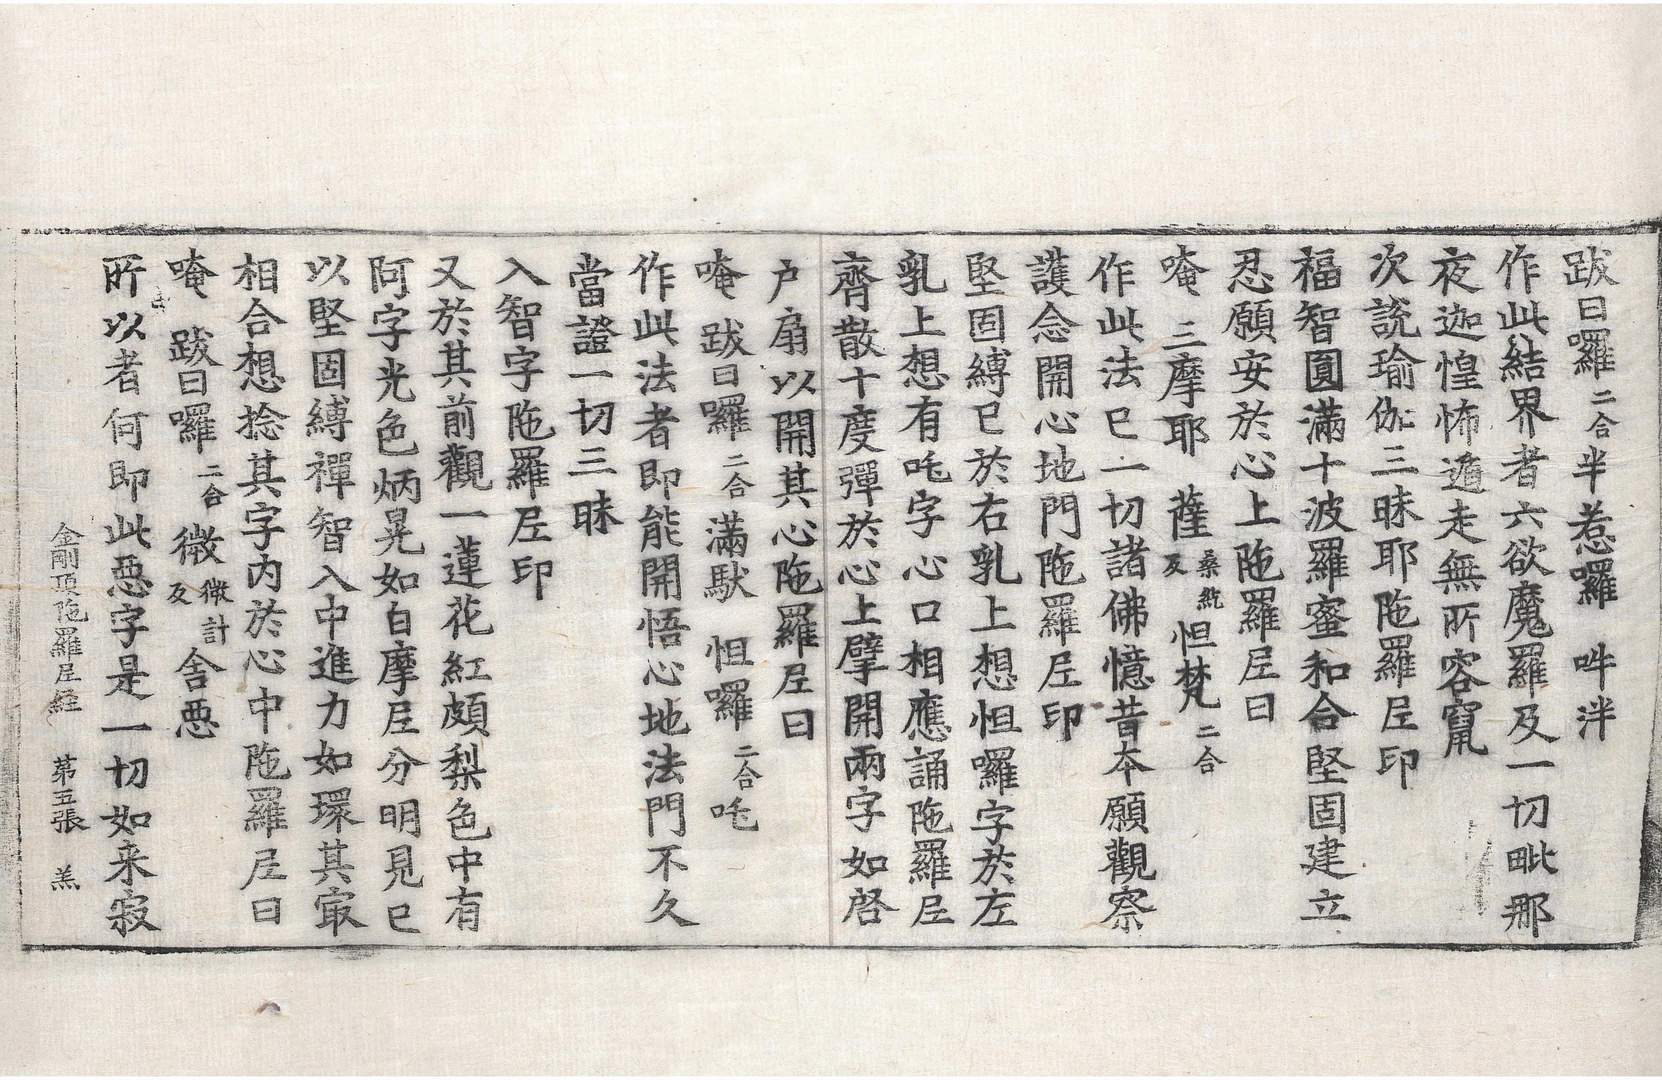 跋日囉二合半惹囉 吽泮
作此結界者六欲魔羅及一切毗那
夜迦惶怖遁走無所容竄
次說瑜伽三昧耶陁羅尼印
福智圓滿十波羅蜜和合堅固建立
忍願安於心上陁羅尼曰
唵 三摩耶 薩桑紇反怛梵二合
作此法已一切諸佛憶昔本願觀察
護念開心地門陁羅尼印
堅固縛已於右乳上想怛囉字於左
乳上想有吒字心口相應誦陁羅尼
齊散十度彈於心上擘開兩字如啓
戶扇以開其心陁羅尼曰
唵 跋日囉二合滿馱 怛囉二合吒
作此法者即能開悟心地法門不久
當證一切三昧
入智字陁羅尼印
又於其前觀一蓮花紅頗梨色中有
阿字光色炳晃如白摩尼分明見已
以堅固縛禪智入中進力如環其㝡
相合想捻其字內於心中陁羅尼曰
唵 跋日囉二合微微計反舍惡
所以者何即此惡字是一切如来寂
金剛頂陁羅尼経 苐五張 羔